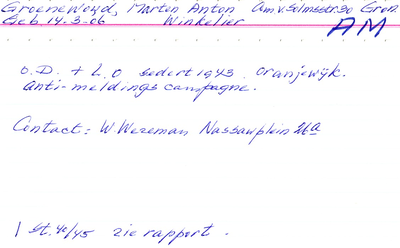 Groenewoud, Marten Anton Am.v.Solmsstr 30 Gron.
Geb 14-3-06 Winkelier
AM
O.D. + L.O sedert 1943. Oranjewijk.
Anti-meldings campagne.
Contact: W. Wezeman Nassauplein 26a
1 St. 40/45 zie rapport.